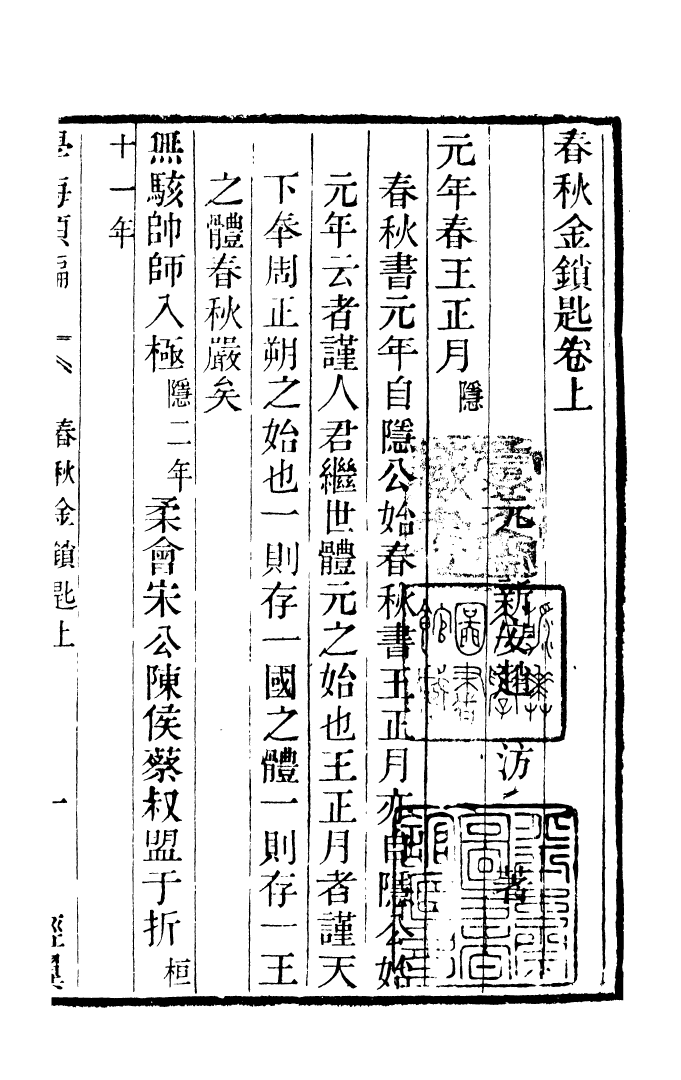 春秋金鎖匙卷上
元 新安趙 汸 著
元年春王正月隱
春秋書元年自隱公始春秋書王正月亦自隱公始
元年云者謹人君繼世體元之始也王正月者謹天
下奉周正朔之始也一則存一國之體一則存一王
之體春秋嚴矣
無駭帥師入極隱二年柔會宋公陳侯蔡叔盟于折桓
十一年
學海類編 春秋金鎖匙上 一 經翼